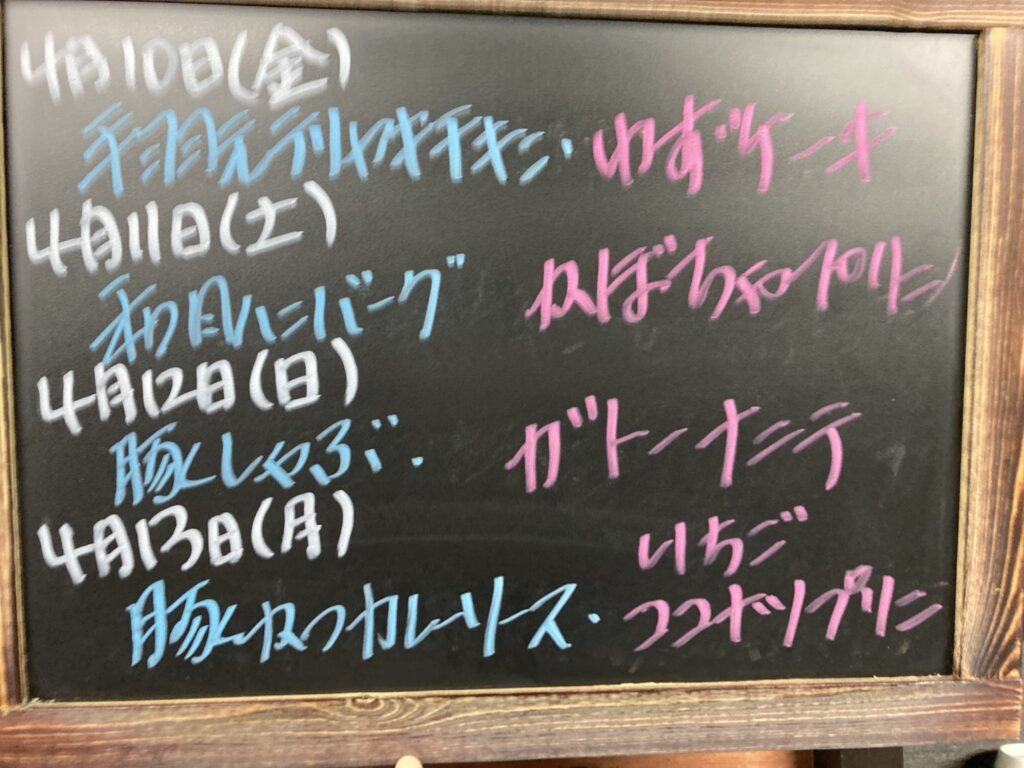 4月10日(金)
テリヤキチキン・ゆずケーキ
4月11日(土)
和風ハンバーグ かぼちゃプリン
4月12日(日)
豚しゃぶ・ ガトーナンテ
4月13日(月)
いちご
豚かつカレーソース・ココナッツプリン